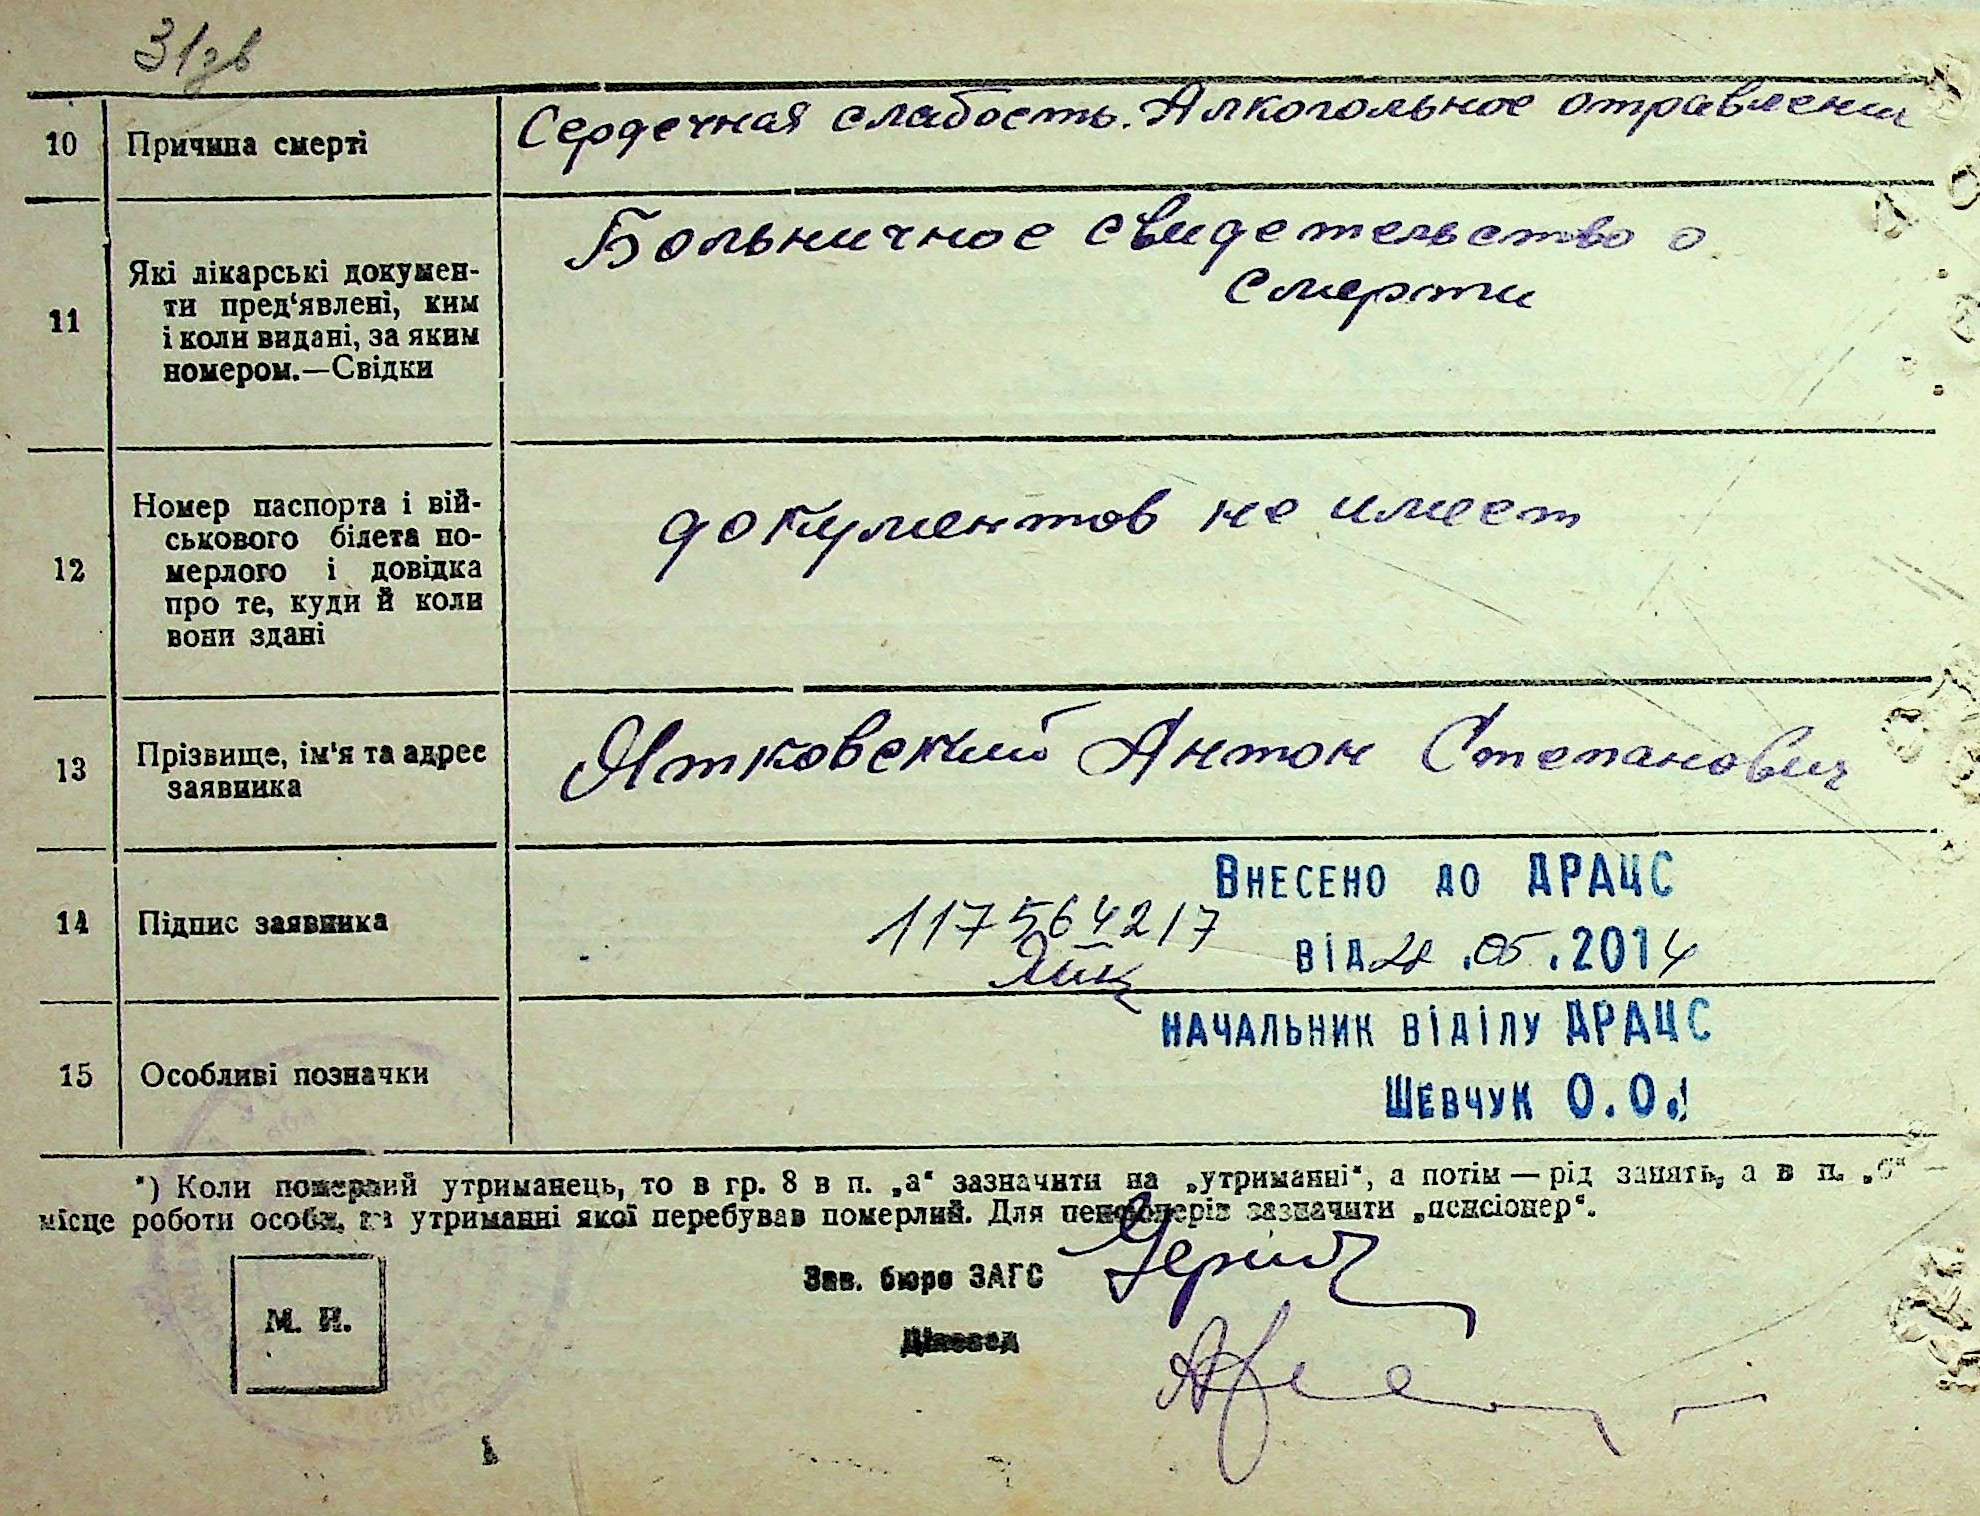 31зв
10 Причина смерті Сердечная слабость. Алкогольное отравлении
11 Які лікарські докумен-
ти пред‘явлені, ким
і коли видані, за яким
номером.—Свідки
Больничное свидетельство о
смерти
12 Номер паспорта і вій-
ськового білета по-
мерлого і довідка
про те, куди й коли
вони здані
документов не имеет
13 Прізвище, ім‘я та адрес
заявника
Ятковский Антон Степанович
14 Підпис заявника
117564217
Внесено до ДРАЦС
від .05.2014
15 Особливі позначки
начальник віділу ДРАЦС
Шевчук О.О.
*) Коли померлий утриманець, то в гр. 8 в п. „а“ зазначити на „утриманні“, а потім — рід занять, а в п. „б“ —
місце роботи особи, на утриманні якої перебував померлий. Для пенсіонерів зазначити „пенсіонер“.
Зав. бюро ЗАГС
М. П.
Діловод